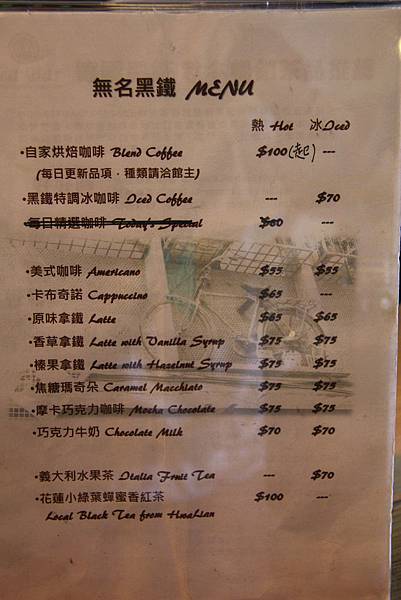 無名黑鐵 MENU
熱 Hot 冰Iced
•自家烘焙咖啡 Blend Coffee $100(起) ---
(每日更新品項，種類請洽館主)
•黑鐵特調冰咖啡 Iced Coffee --- $70
•每日精選咖啡 Today's Special $60
•美式咖啡 Americano $55 $55
•卡布奇諾 Cappuccino $65 ---
•原味拿鐵 Latte $65 $65
•香草拿鐵 Latte with Vanilla Syrup $75 $75
•榛果拿鐵 Latte with Hazelnut Syrup $75 $75
•焦糖瑪奇朵 Caramel Macchiato $75 $75
•摩卡巧克力咖啡 Mocha Chocolate $75 $75
•巧克力牛奶 Chocolate Milk $70 $70
•義大利水果茶 Italia Fruit Tea --- $70
•花蓮小綠葉蟬蜜香紅茶 $100 ---
Local Black Tea from HwaLian